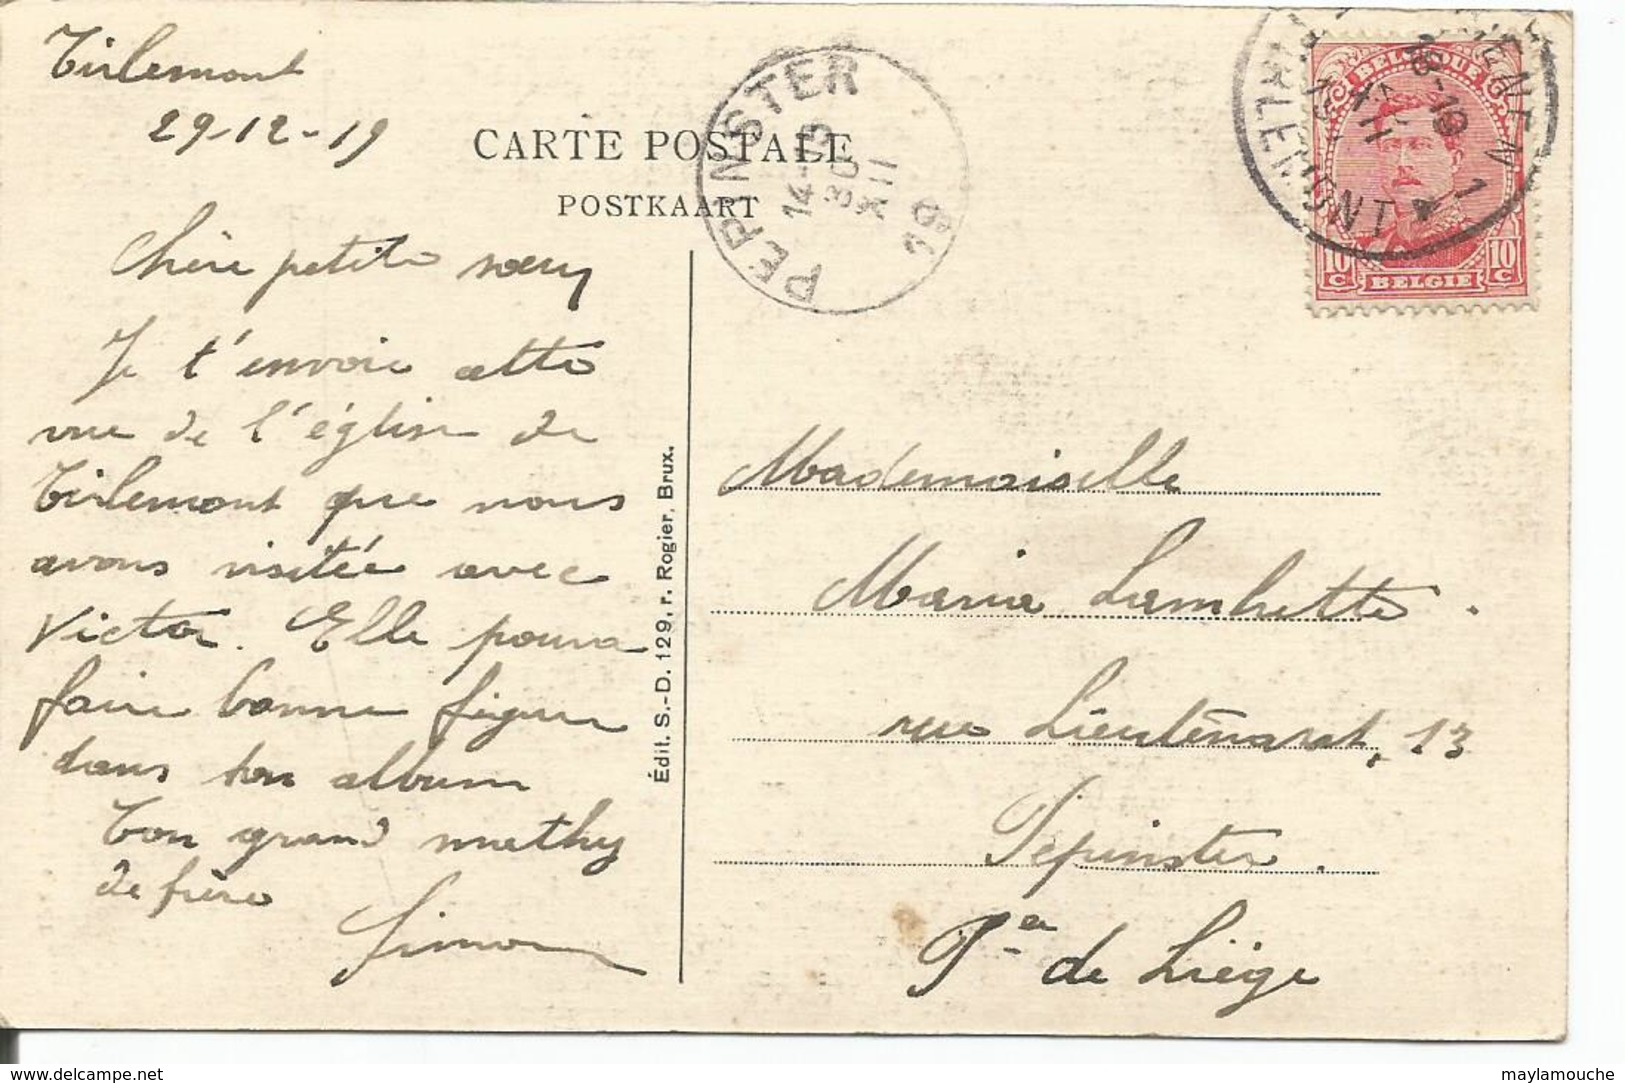 Tirlemont
29-12-19
CARTE POSTALE
POSTKAART
PEPINSTER
14-15
30
XII
19
BELGIQUE
10 C
10 C
BELGIE
18-19
XII
TIRLEMONT 1
Chère petite sœur
Je t'envoie cette
vue de l'église de
Tirlemont que nous
avons visitée avec
Victor. Elle pourra
faire bonne figure
dans ton album
Ton grand
de frère
Simon
Édit. S.-D. 129, r. Rogier, Brux.
Mademoiselle
Maria Lambette.
rue Lieutenant, 13
Pepinster.
Pce de Liége
www.delcampe.net
maylamouche